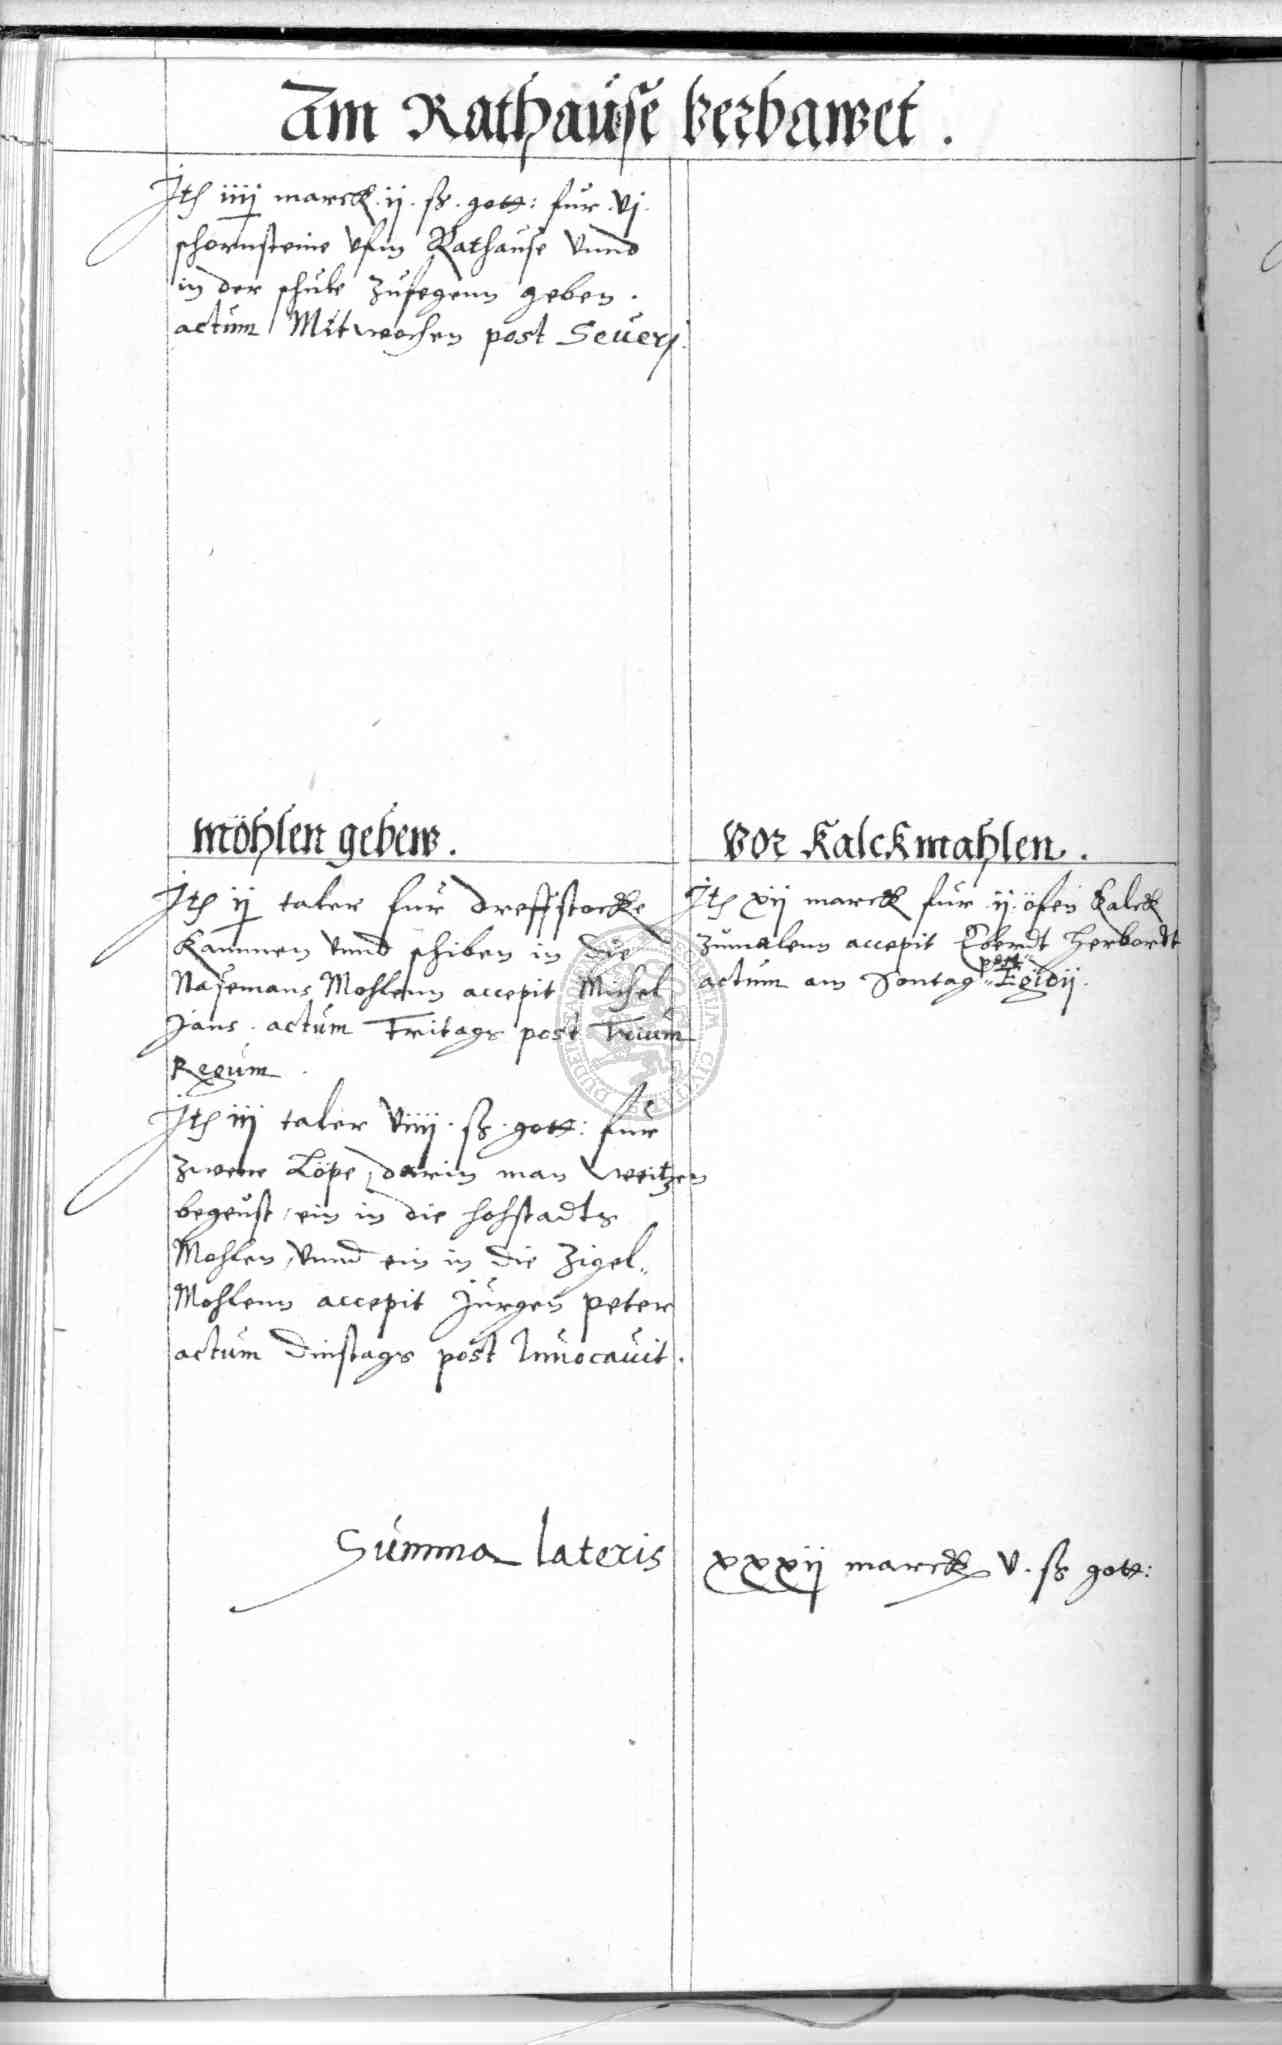 Am Rathause verbawet.
Ite iiij marck. ij. ß. gott: fur. vj.
schornsteine vfm Rathause vnnd
in der schule zufegenn geben.
actum Mitwochen post Severj.
möhlen gebew.
Ite ij taler fur dreffstocke
Kammen vnnd schiben in die
Nasemans Mohlenn accepit Michel
Jans. actum Fritags post Trium
Regum.
Ite iij taler viiij. ß. gott: fur
zwene Löpe, darin man weitzen
begeust, ein in die hohstadts
Mohlen, vnnd ein in die Zigel„
Mohlenn accepit Jurgen peter
actum Dinstags post Invocavit.
Vor Kalckmahlen.
Ite xij marck fur. ij. öfen Kalck
zumalenn accepit Eberdt Herbordt
actum am Sontag post Egidij.
Summa lateris xxxij marck v. ß gott: